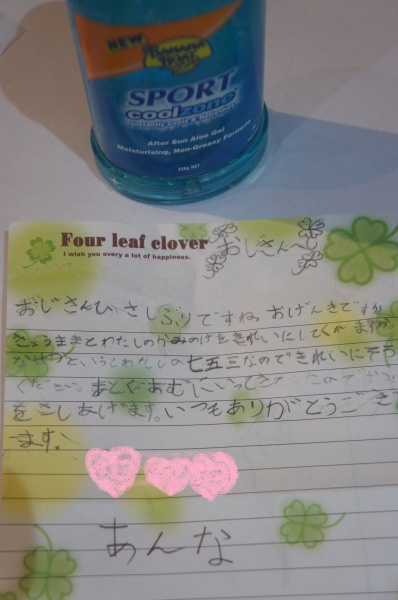 NEW
BANANA
BOAT
SPORT
coolzone
After Sun Aloe Gel
Moisturising, Non-Greasy Formula
Four leaf clover
I wish you every a lot of happiness.
おじさんへ
おじさんひさしぶりですね。おげんきですか
きょうままとわたしのかみのけをきれいにしてくれますか
というとわたしの七五三なのできれいに下さ
ままとぐあむにいってきて
をさしあげます。いつもありがとうござ
ます。
あんな